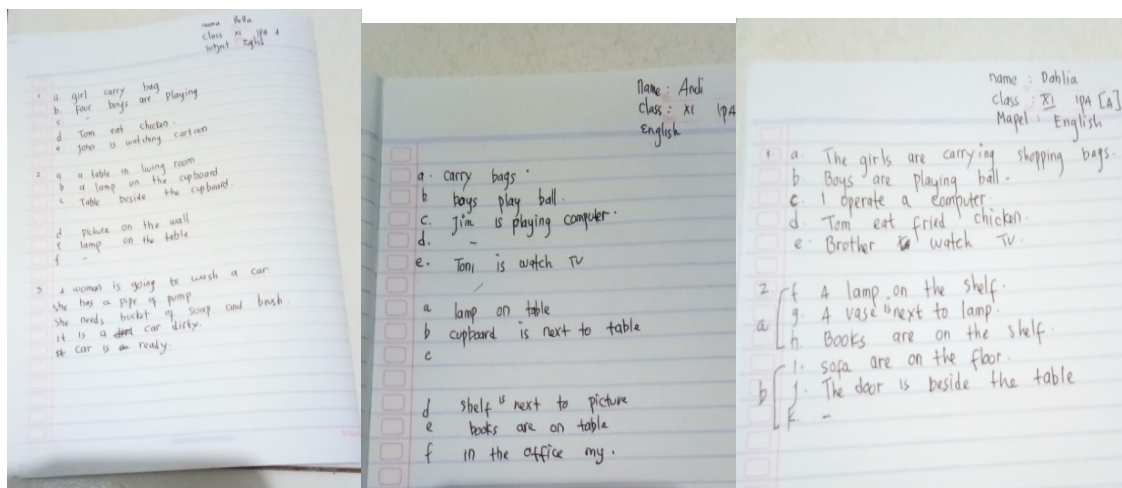 name Bella
class XI IPA A
subject English
1 a girl carry bag
b. Four boys are playing
c. -
d Tom eat chicken.
e John is watching cartoon
2 a a table in living room
b a lamp on the cupboard.
c Table beside the cupboard.
d picture on the wall
e lamp on the table
f -
3 A woman is going to wash a car
she has a pipe of pump
she needs bucket of soap and brush.
it is a car dirty.
car is ready.
Name : Andi
Class : XI IPA
English
a. carry bags.
b boys play ball.
c. Jim is playing computer.
d. -
e. Toni is watch TV
a lamp on table
b cupboard is next to table
c
d shelf is next to picture
e books are on table
f in the office my.
name : Dahlia
Class : XI IPA [A]
Mapel : English
1. a. The girls are carrying shopping bags.
b. Boys are playing ball.
c. I operate a computer.
d. Tom eat fried chicken.
e. Brother watch TV.
2 f A lamp on the shelf.
a g. A vase is next to lamp.
h. Books are on the shelf.
i. sofa are on the floor.
b j. The door is beside the table
k. -